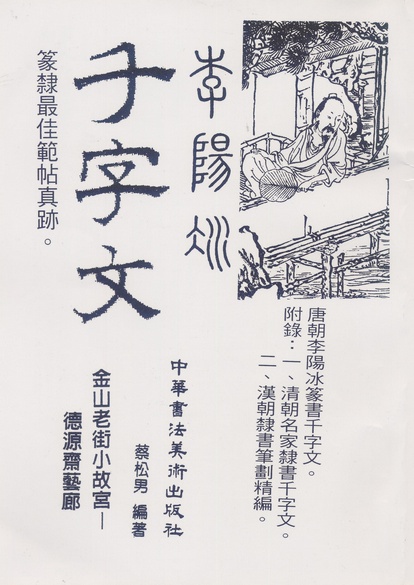 唐朝李陽冰篆書千字文。
附錄：一、清朝名家隸書千字文。
二、漢朝隸書筆劃精編。
李陽冰
千字文
篆隸最佳範帖真跡。
中華書法美術出版社
蔡松男 編著
金山老街小故宮－
德源齋藝廊